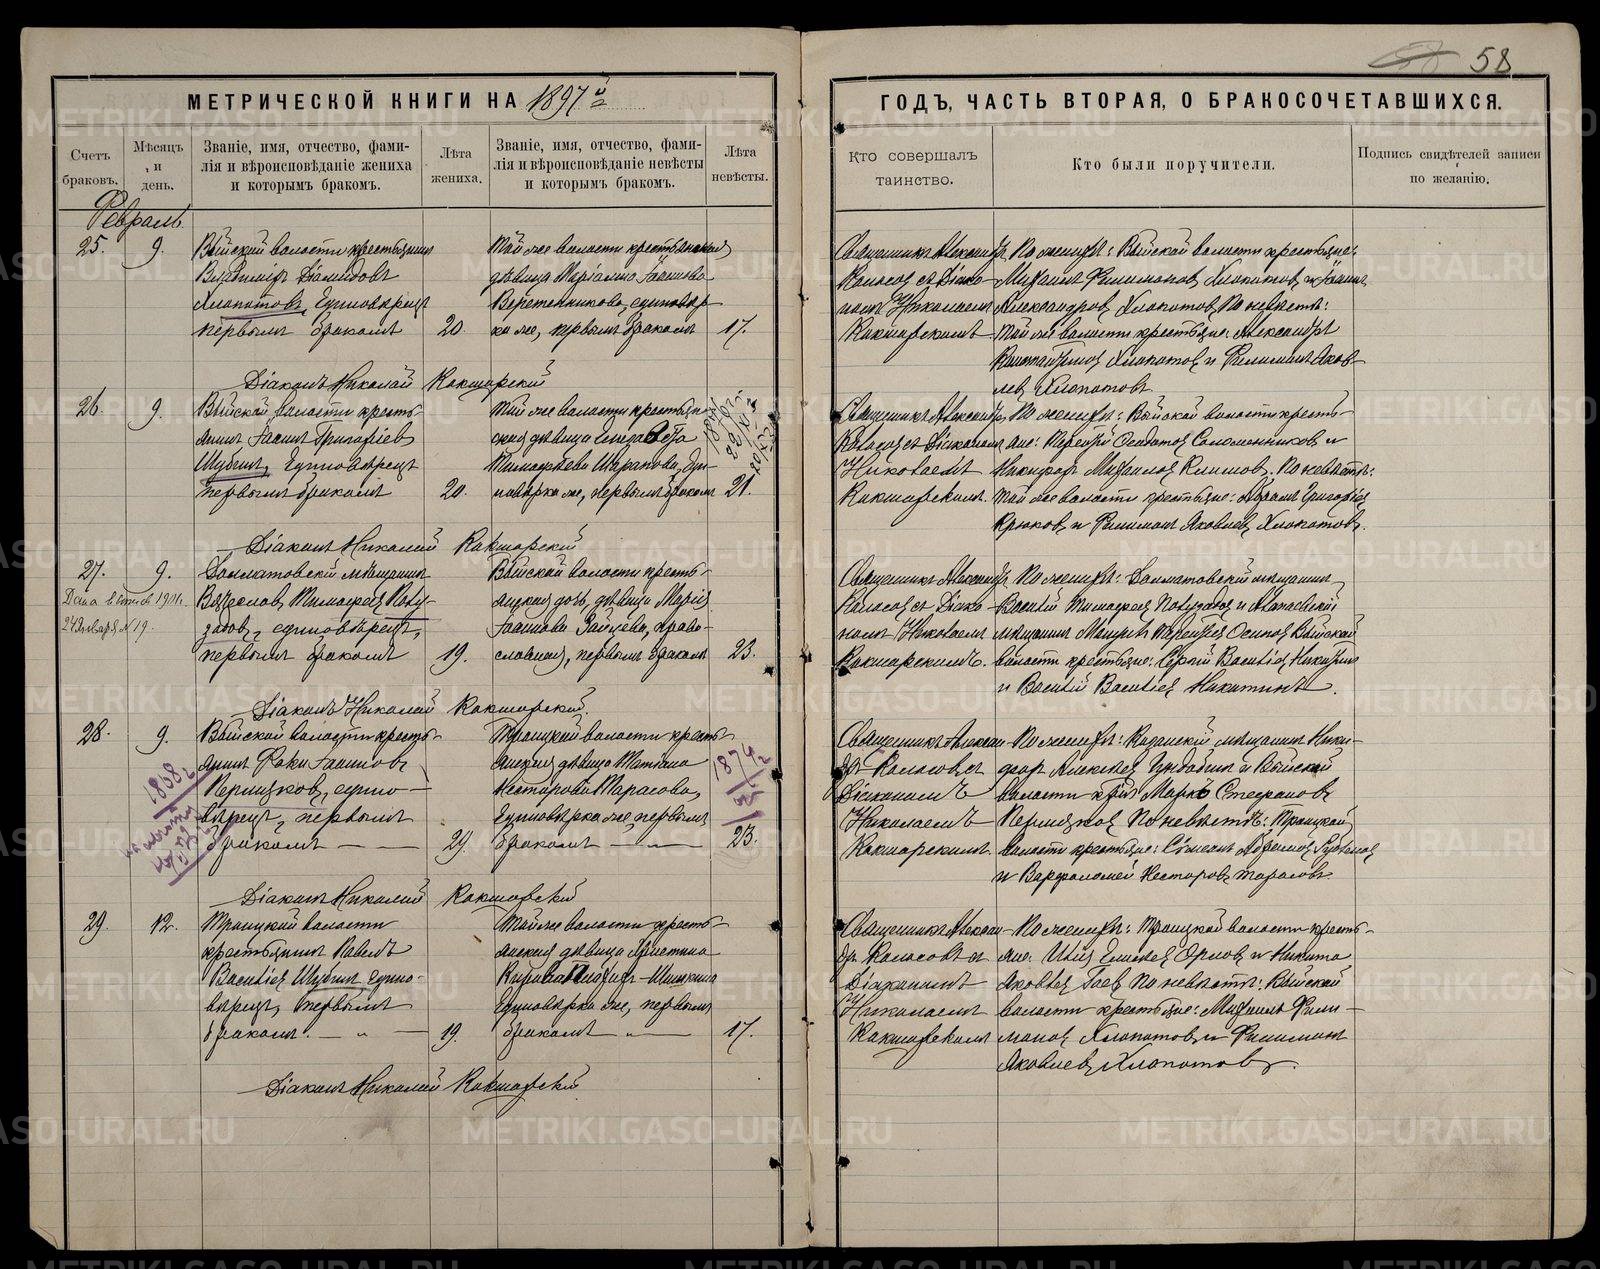 58
МЕТРИЧЕСКОЙ КНИГИ НА 1897й
ГОДЪ, ЧАСТЬ ВТОРАЯ, О БРАКОСОЧЕТАВШИХСЯ.
Счетъ браковъ.
Мѣсяцъ и день.
Званіе, имя, отчество, фами-
лія и вѣроисповѣданіе жениха
и которымъ бракомъ.
Лѣта жениха.
Званіе, имя, отчество, фами-
лія и вѣроисповѣданіе невѣсты
и которымъ бракомъ.
Лѣта невѣсты.
Кто совершалъ
таинство.
Кто были поручители.
Подпись свидѣтелей записи
по желанію.
Февраль
25. 9.
Выйской волости крестьянинъ
Владиміръ Діамидовъ
Хлопотовъ, Единовѣрецъ
первымъ бракомъ 20.
Той же волости крестьянская
дѣвица Маріамна Іоаннова
Веретенникова, единовѣр-
ка же, первымъ бракомъ 17.
Священникъ Александръ
Колосовъ съ Діако-
номъ Николаемъ
Кокшарскимъ
По женихѣ: Выйской волости крестьяне:
Михаилъ Филимоновъ Хлопотовъ и Іоаннъ
Александровъ Хлопотовъ По невѣстѣ:
Той же волости крестьяне: Александръ
Хлопотовъ и Филимонъ Яков-
левъ Хлопотовъ
Діаконъ Николай Кокшарскій
26. 9.
Выйской волости кресть-
янинъ Іоаннъ Григорьевъ
Шубинъ, Единовѣрецъ
первымъ бракомъ 20.
Той же волости крестьян-
ская дѣвица Елизавета
Тимофеева Шарапова, еди-
новѣрка же, первымъ бракомъ 21.
Священникъ Александръ
Колосовъ съ Діакономъ
Николаемъ
Кокшарскимъ
По женихѣ: Выйской волости кресть-
яне: Соломенниковъ и
Никифоръ Михаиловъ Климовъ. По невѣстѣ:
Той же волости крестьяне: Григорьевъ
Крюковъ и Филимонъ Яковлевъ Хлопотовъ.
Діаконъ Николай Кокшарскій
27. 9.
24 Января № 19.
Далматовскій мѣщанинъ
Вячеславъ Тимофеевъ Полу-
задовъ, единовѣрецъ,
первымъ бракомъ 19.
Выйской волости кресть-
янская дочь, дѣвица Марія
Іоаннова Зайцева, право-
славная, первымъ бракомъ 23.
Священникъ Александръ
Колосовъ съ Діако-
номъ Николаемъ
Кокшарскимъ.
По женихѣ: Далматовскій мѣщанинъ
Василій Тимофеевъ Полузадовъ и
мѣщанинъ Осиповъ Выйской
волости крестьяне: Сергѣй Васильевъ Никитинъ
и Василій Васильевъ Никитинъ.
Діаконъ Николай Кокшарскій.
28. 9.
1868 г.
Выйской волости кресть-
янинъ Фока Іоанновъ
Пермяковъ, едино-
вѣрецъ, первымъ
бракомъ 29.
Троицкой волости кресть-
янская дѣвица Татіана
Несторова Тарасова,
Единовѣрка же, первымъ
бракомъ 23.
1874 г.
Священникъ Алексан-
дръ Колосовъ съ
Діакономъ
Николаемъ
Кокшарскимъ.
По женихѣ: Казанскій мѣщанинъ Ники-
форъ Алексѣевъ и Выйской
волости крѣст. Маркъ Стефановъ
Пермяковъ По невѣстѣ: Троицкой
волости крестьяне: Сѵмеонъ
и Варфоломей Несторовъ Тарасовъ
Діаконъ Николай Кокшарскій
29. 12.
Троицкой волости
крестьянинъ Павелъ
Васильевъ Шубинъ едино-
вѣрецъ, первымъ
бракомъ. 19.
Той же волости кресть-
янская дѣвица Христина
Шишкина
Единовѣрка же, первымъ
бракомъ 17.
Священникъ Алексан-
дръ Колосовъ съ
Діакономъ
Николаемъ
Кокшарскимъ
По женихѣ: Троицкой волости кресть-
яне: Илія Орловъ и Никита
Яковлевъ Гаевъ По невѣстѣ: Выйской
волости крестьяне: Михаилъ Фили-
моновъ Хлопотовъ и Филимонъ
Яковлевъ Хлопотовъ.
Діаконъ Николай Кокшарскій
METRIKI.GASO-URAL.RU